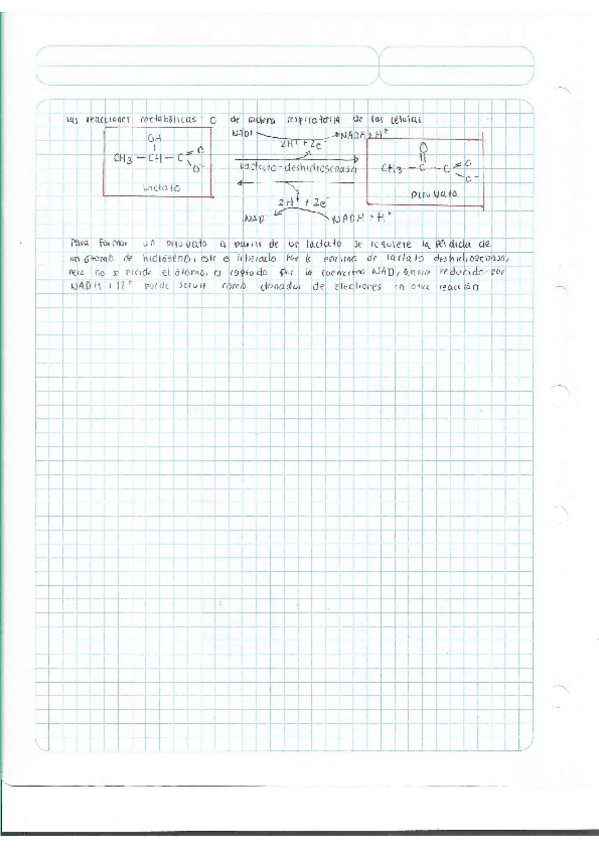 las reacciones metabólicas o de cadena respiratoria de las células.
NAD+ NADH + H+
2H+ + 2e-
OH
CH3 - CH - C O O-
Lactato
lactato-deshidrogenasa
O
CH3 - C - C O O-
Piruvato
2H+ + 2e-
NAD+ NADH + H+
Para formar un piruvato a partir de un lactato se requiere la pérdida de
un átomo de hidrógeno, este es liberado por la enzima de lactato deshidrogenasa,
pero no se pierde el átomo, es captado por la coenzima NAD, reducida por
NADH y H+ puede servir como donador de electrones en otra reacción